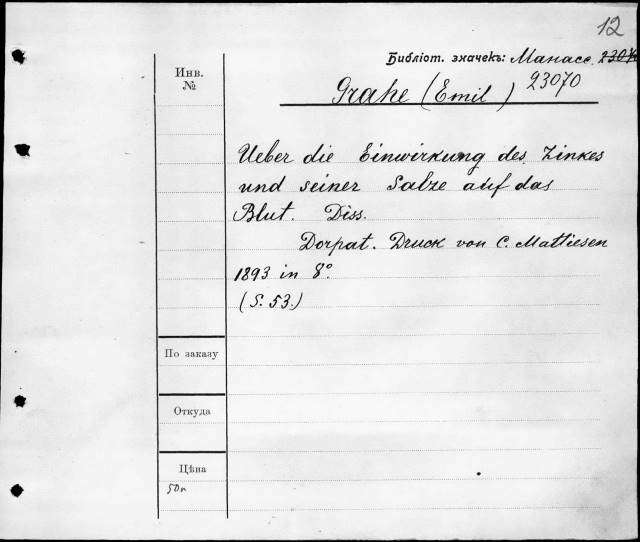 12
Библіот. значекъ: Манасс. 2307
23070
Инв. №
Grahe (Emil)
Ueber die Einwirkung des Zinkes
und seiner Salze auf das
Blut. Diss.
Dorpat. Druck von C. Mattiesen
1893 in 8°.
(S. 53.)
По заказу
Откуда
Цѣна
50 к